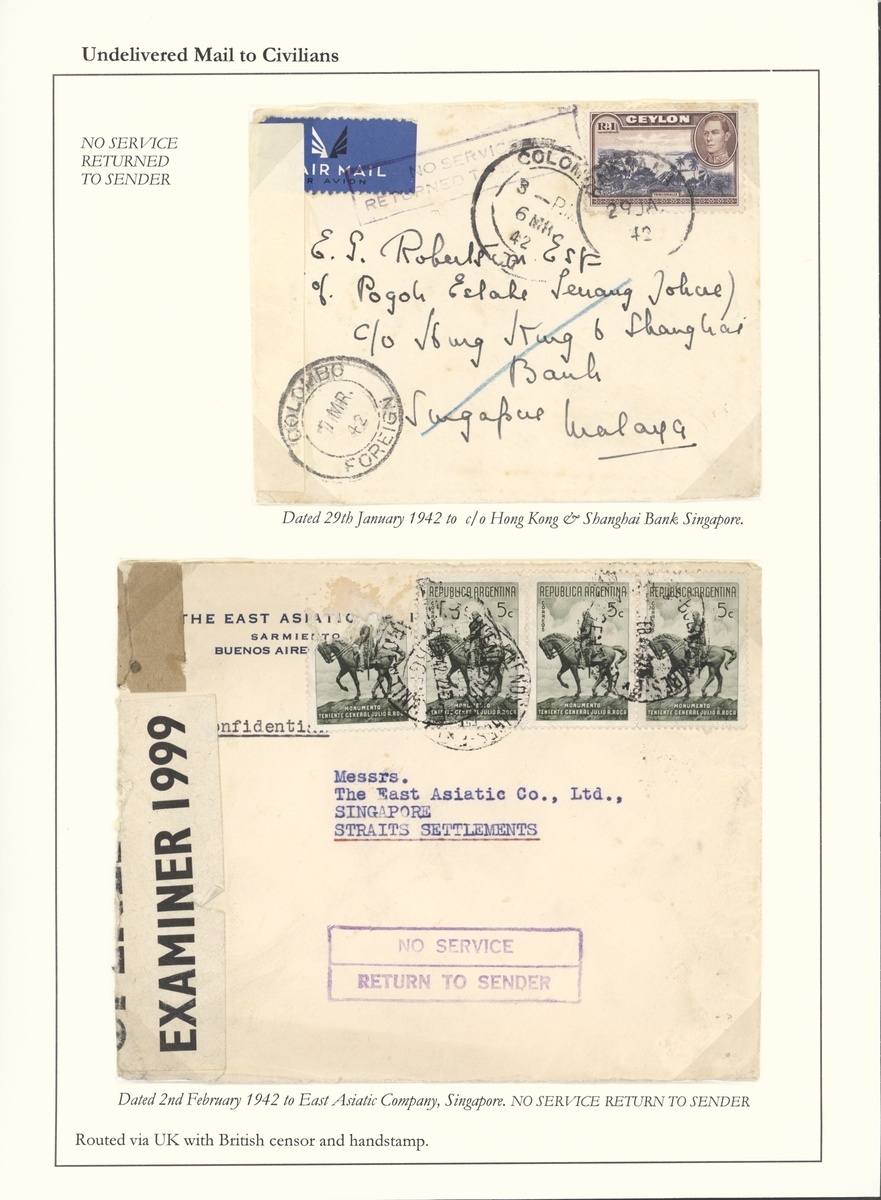 Undelivered Mail to Civilians
NO SERVICE
RETURNED
TO SENDER
AIR MAIL
R AVION
NO SERVICE
RETURNED T
COLOMBO
3 — P.
6 MR.
42
29 JA.
42
CEYLON
R:1
E. G. Robertson Esq
of. Pogoh Estate Senang Johore)
c/o Hong Kong & Shanghai
Bank
Singapore Malaya
COLOMBO
7 MR.
42
FOREIGN
Dated 29th January 1942 to c/o Hong Kong & Shanghai Bank Singapore.
THE EAST ASIATIC
SARMIENTO
BUENOS AIRE
onfidential
REPUBLICA ARGENTINA
5c
CORREOS
REPUBLICA ARGENTINA
5c
REPUBLICA ARGENTINA
5c
MONUMENTO
TENIENTE GENERAL JULIO A. ROCA
MONUMENTO
TENIENTE GENERAL JULIO A. ROCA
MONUMENTO
TENIENTE GENERAL JULIO A. ROCA
MONUMENTO
TENIENTE GENERAL JULIO A. ROCA
EXAMINER 1999
Messrs.
The East Asiatic Co., Ltd.,
SINGAPORE
STRAITS SETTLEMENTS
NO SERVICE
RETURN TO SENDER
Dated 2nd February 1942 to East Asiatic Company, Singapore. NO SERVICE RETURN TO SENDER
Routed via UK with British censor and handstamp.